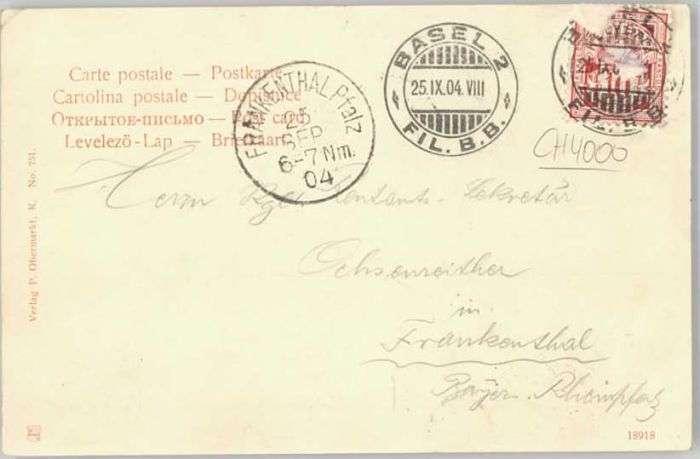 Carte postale — Postkarte
Cartolina postale — Dopisnice
Открытое-письмо — Post card
Levelező-Lap — Briefkaart
FRANKENTHAL Pfalz
25
SEP
6-7 Nm.
04
BASEL 2
25.IX.04.VIII
FIL. B.B.
FIL. B.B.
CH4000
Herrn Kgl. Rentamts-Sekretär
Ochsenreither
in
Frankenthal
Bayer. Rheinpfalz
Verlag P. Obermarkt, K. No. 751.
18918